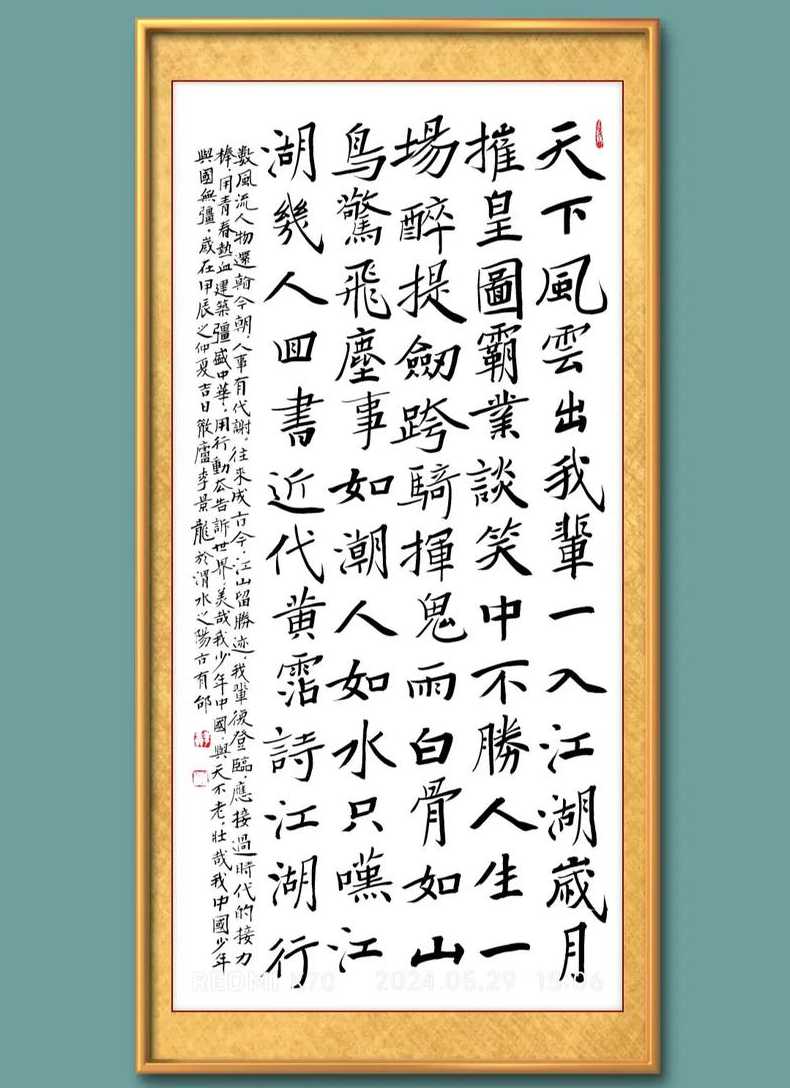 天下風雲出我輩一入江湖歲月
摧皇圖霸業談笑中不勝人生一
場醉提劍跨騎揮鬼雨白骨如山
鳥驚飛塵事如潮人如水只嘆江
湖幾人回書近代黄霑詩江湖行
數風流人物還翰今朝,人事有代謝,往來成古今,江山留勝迹,我輩復登臨,應接過時代的接力
棒,用青春熱血建築彊盛中華,用行動告訴世界,美哉我少年中國,與天不老,壯哉我中國少年
與國無彊,歲在甲辰之仲夏吉日廬李景龍於渭水之陽古有邰
REDMI K70 2024.05.29 15:06